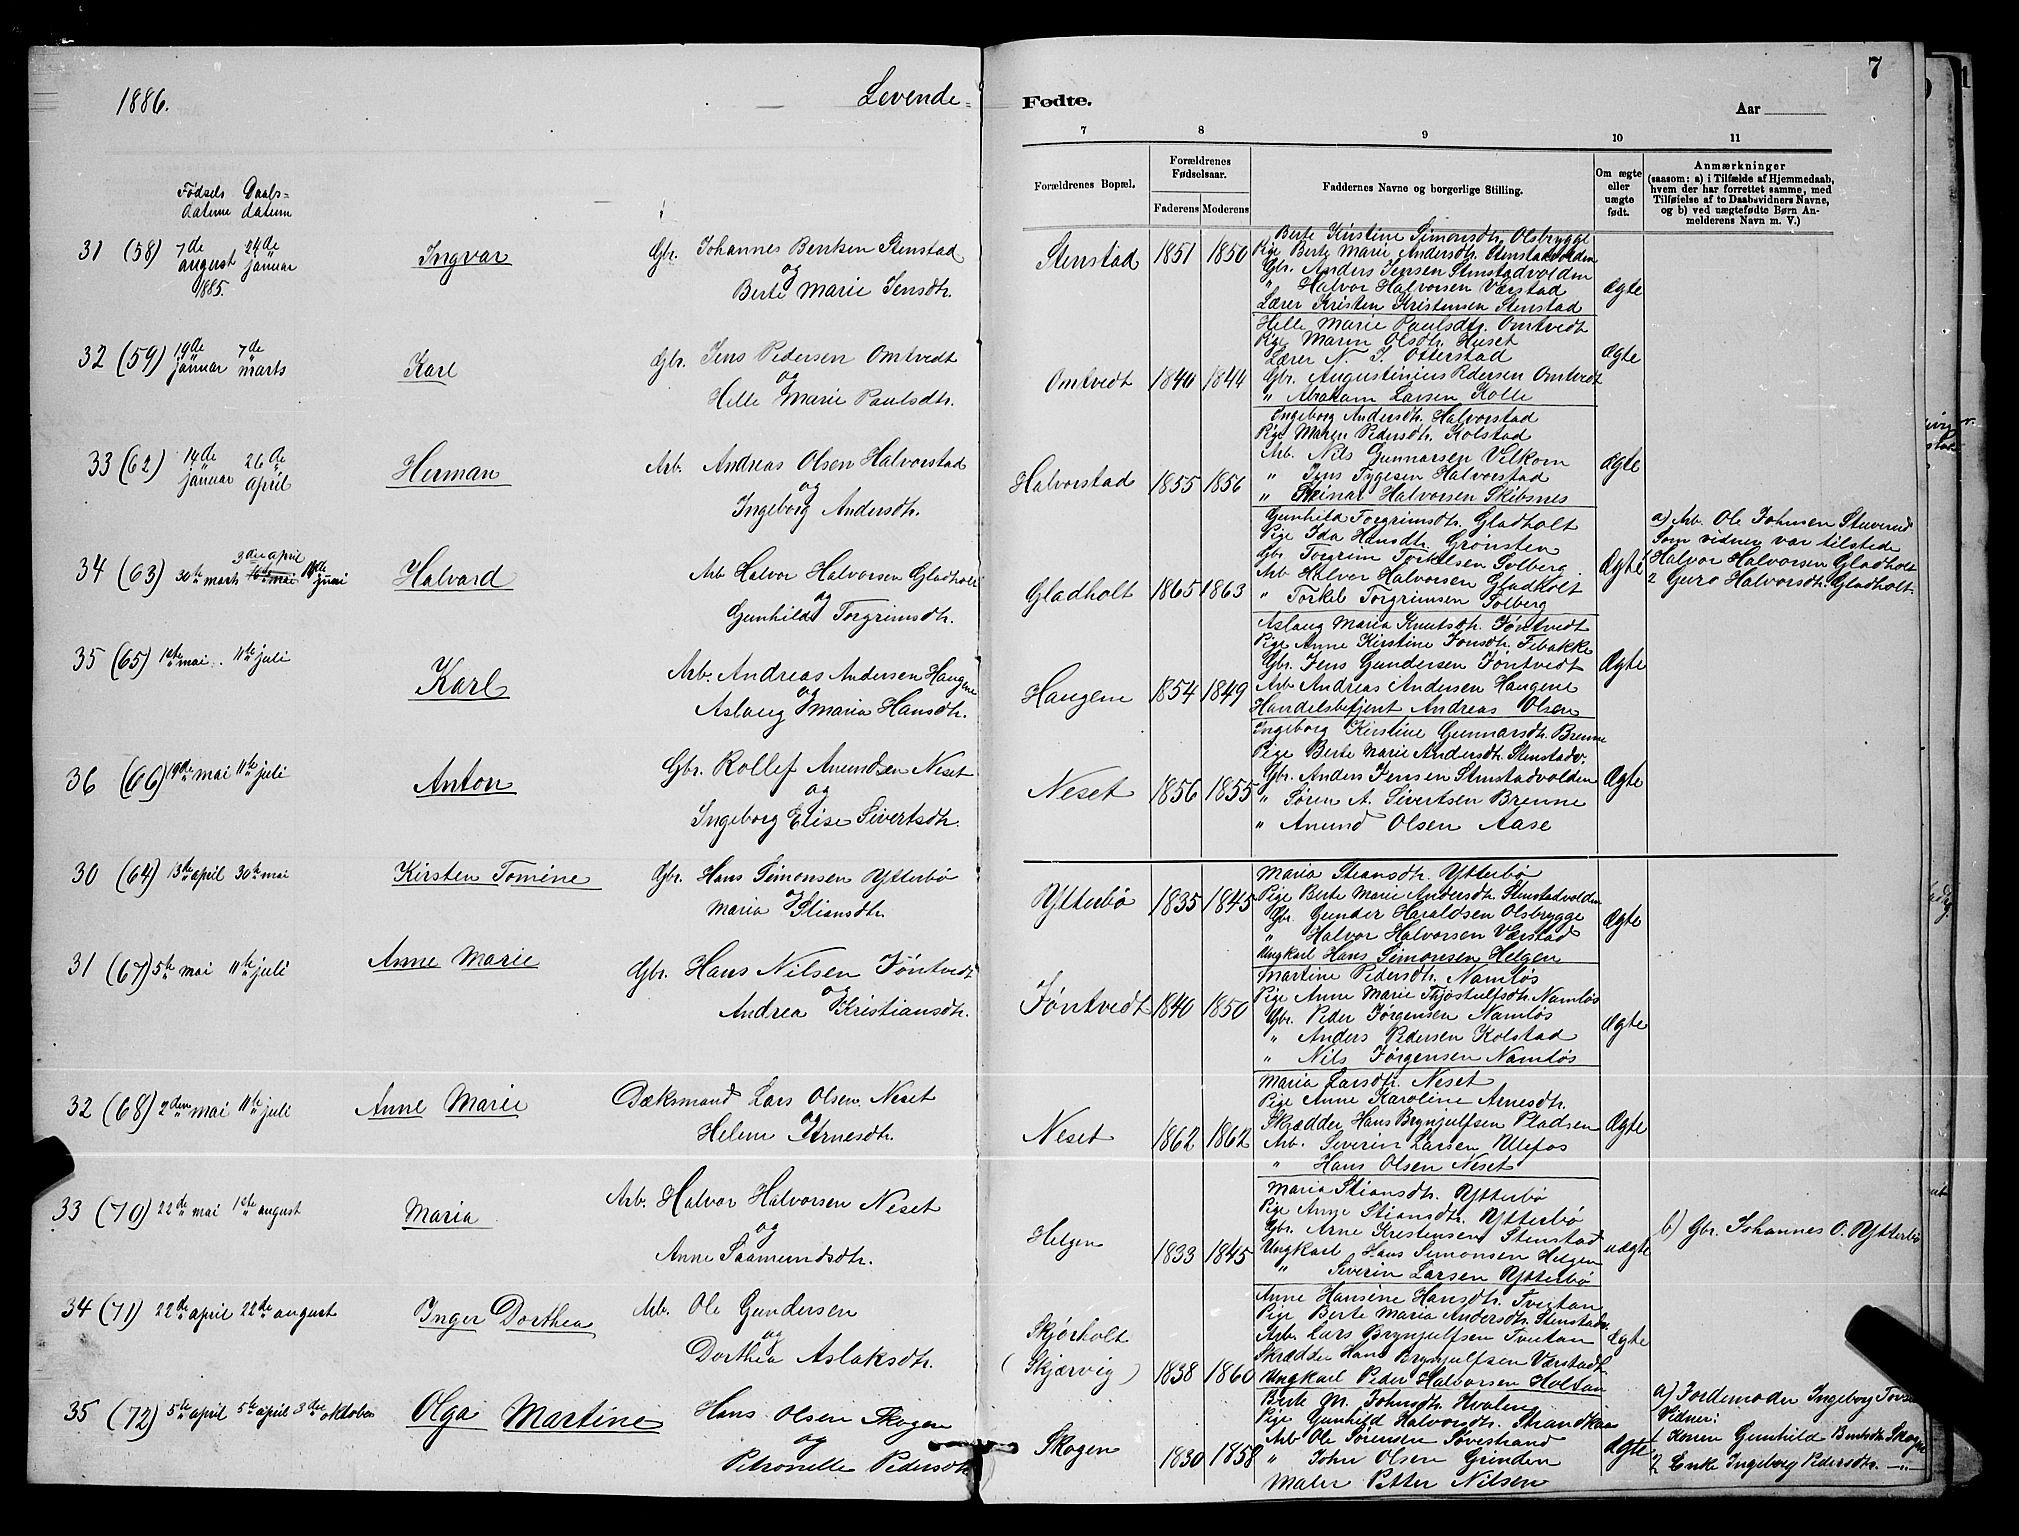 1886.
Levende-
Fødte.
7
Aar
7
8
9
10
11
Fødsels datum
Daabs- datum
Forældrenes Bopæl.
Forældrenes Fødselsaar.
Faderens
Moderens
Faddernes Navne og borgerlige Stilling.
Om ægte eller uægte født.
Anmærkninger
(saasom: a) i Tilfælde af Hjemmedaab,
hvem der har forrettet samme, med
Tilføielse af to Daabsvidners Navne,
og b) ved uægtefødte Børn An-
melderens Navn m. V.)
31 (58) 7de august 1885. 24de januar Ingvar Gbr. Johannes Bentsen Stenstad
og
Berte Marie Jensdtr.
Stenstad 1851 1850 Ægte
Berte Kirstine Simonsdtr. Olsbrygge
Pige Berte Marie Andersdtr. Stenstadvolden
Gbr. Anders Jensen Stenstadvolden
" Halvor Halvorsen Værstad
Lærer Kristen Kristensen Stenstad
32 (59) 19de januar 7de marts Karl Gbr. Jens Pedersen Omtvedt
og
Helle Marie Paulsdtr.
Omtvedt 1840 1844 Ægte
Helle Marie Paulsdtr. Omtvedt
Pige Maren Olsdtr. Huset
Lærer N. J. Otterstad
Gbr. Augustinius Pedersen Omtvedt
" Abraham Larsen Kolle
33 (62) 14de januar 26de april Herman Arb. Andreas Olsen Halvorstad
og
Ingeborg Andersdtr.
Halvorstad 1855 1856 Ægte
Ingeborg Andersdtr. Halvorstad
Pige Maren Pedersdtr. Kolstad
Arb. Nils Gunnarsen Velkom
" Jens Tygesen Halvorstad
" Steinar Halvorsen Skibsnes
34 (63) 30te marts 3die april 14de juni Halvard Arb. Halvor Halvorsen Gladholt
og
Gunhild Torgrimsdtr.
Gladholt 1865 1863 Ægte
Gunhild Torgrimsdtr. Gladholt
Pige Ida Hansdtr. Grønsten
Gbr. Torgrim Torkelsen Solberg
Arb. Halvor Halvorsen Gladholt
" Torkel Torgrimsen Solberg
a) Arb. Ole Johnsen Stuverud
Som vidner var tilstede
Halvor Halvorsen Gladholt
2 Guro Halvorsdtr. Gladholt
35 (65) 1ste mai 11te juli Karl Arb. Andreas Andersen Haugene
og
Aslaug Maria Hansdtr.
Haugene 1854 1849 Ægte
Aslaug Maria Knutsdtr. Jøntvedt
Pige Anne Kirstine Jonsdtr. Tebakke
Gbr. Jens Gundersen Jøntvedt
Arb. Andreas Andersen Haugene
Handelsbetjent Andreas Olsen
36 (66) 19de mai 11te juli Anton Gbr. Rollef Anundsen Neset
og
Ingeborg Elise Sivertsdtr.
Neset 1856 1855 Ægte
Ingeborg Kirstine Gunnarsdtr. Brenne
Pige Berte Marie Andersdtr. Stenstadv.
Gbr. Anders Jensen Stenstadvolden
" Søren A. Sivertsen Brenne
" Anund Olsen Aase
30 (64) 13de april 30te mai Kirsten Tomine Gbr. Hans Simonsen Ytterbø
og
Maria Stiansdtr.
Ytterbø 1835 1845 Ægte
Maria Stiansdtr. Ytterbø
Pige Berte Marie Andersdtr. Stenstadvolden
Gbr. Gunder Haraldsen Olsbrygge
" Halvor Halvorsen Værstad
Ungkarl Hans Simonsen Helgen
31 (67) 5te mai 11te juli Anne Marie Gbr. Hans Nilsen Jøntvedt
og
Andrea Kristiansdtr.
Jøntvedt 1840 1850 Ægte
Martine Pedersdtr. Namløs
Pige Anne Marie Thjostulfsdtr. Namløs
Gbr. Peder Jørgensen Namløs
" Anders Pedersen Kolstad
" Nils Jørgensen Namløs
32 (68) 2den mai 11te juli Anne Marie Dæksmand Lars Olsen Neset
og
Helene Arnesdtr.
Neset 1862 1862 Ægte
Maria Larsdtr. Neset
Pige Anne Karoline Arnesdtr.
Skrædder Hans Brynjulfsen Pladsen
Arb. Severin Larsen Ulefos
" Hans Olsen Neset
33 (70) 22de mai 1ste august Maria Arb. Halvor Halvorsen Neset
og
Anne Saamundsdtr.
Helgen 1833 1845 uægte
Maria Stiansdtr. Ytterbø
Pige Anne Stiansdtr. Ytterbø
Gbr. Arne Kristensen Stenstad
Ungkarl Hans Simonsen Helgen
" Severin Larsen Ytterbø
b) Gbr. Johannes O. Ytterbø
34 (71) 22de april 22de august Inger Dorthea Arb. Ole Gundersen
og
Dorthea Aslaksdtr.
Skjørholt
(Skjærvig) 1838 1860 Ægte
Anne Hansine Hansdtr. Tveitan
Pige Berte Maria Andersdtr. Stenstadv.
Arb. Lars Brynjulfsen Tveitan
Skrædder Hans Brynjulfsen Værstad
Ungkarl Peder Halvorsen Holtan
35 (72) 5te april 5te april 3die oktober Olga Martine Hans Olsen Skogen
og
Petronelle Pedersdtr.
Skogen 1830 1858 Ægte
Berte M. Johnsdtr. Hvalen
Pige Gunhild Halvorsdtr. Strandkaa
Arb Ole Sørensen Sovestrand
" John Olsen Grinden
Maler Petter Nilsen
a) Jordemoder Ingeborg
Vidner:
1 Konen Gunhild Skogen
2 Enke Ingeborg Pedersdtr. —"—